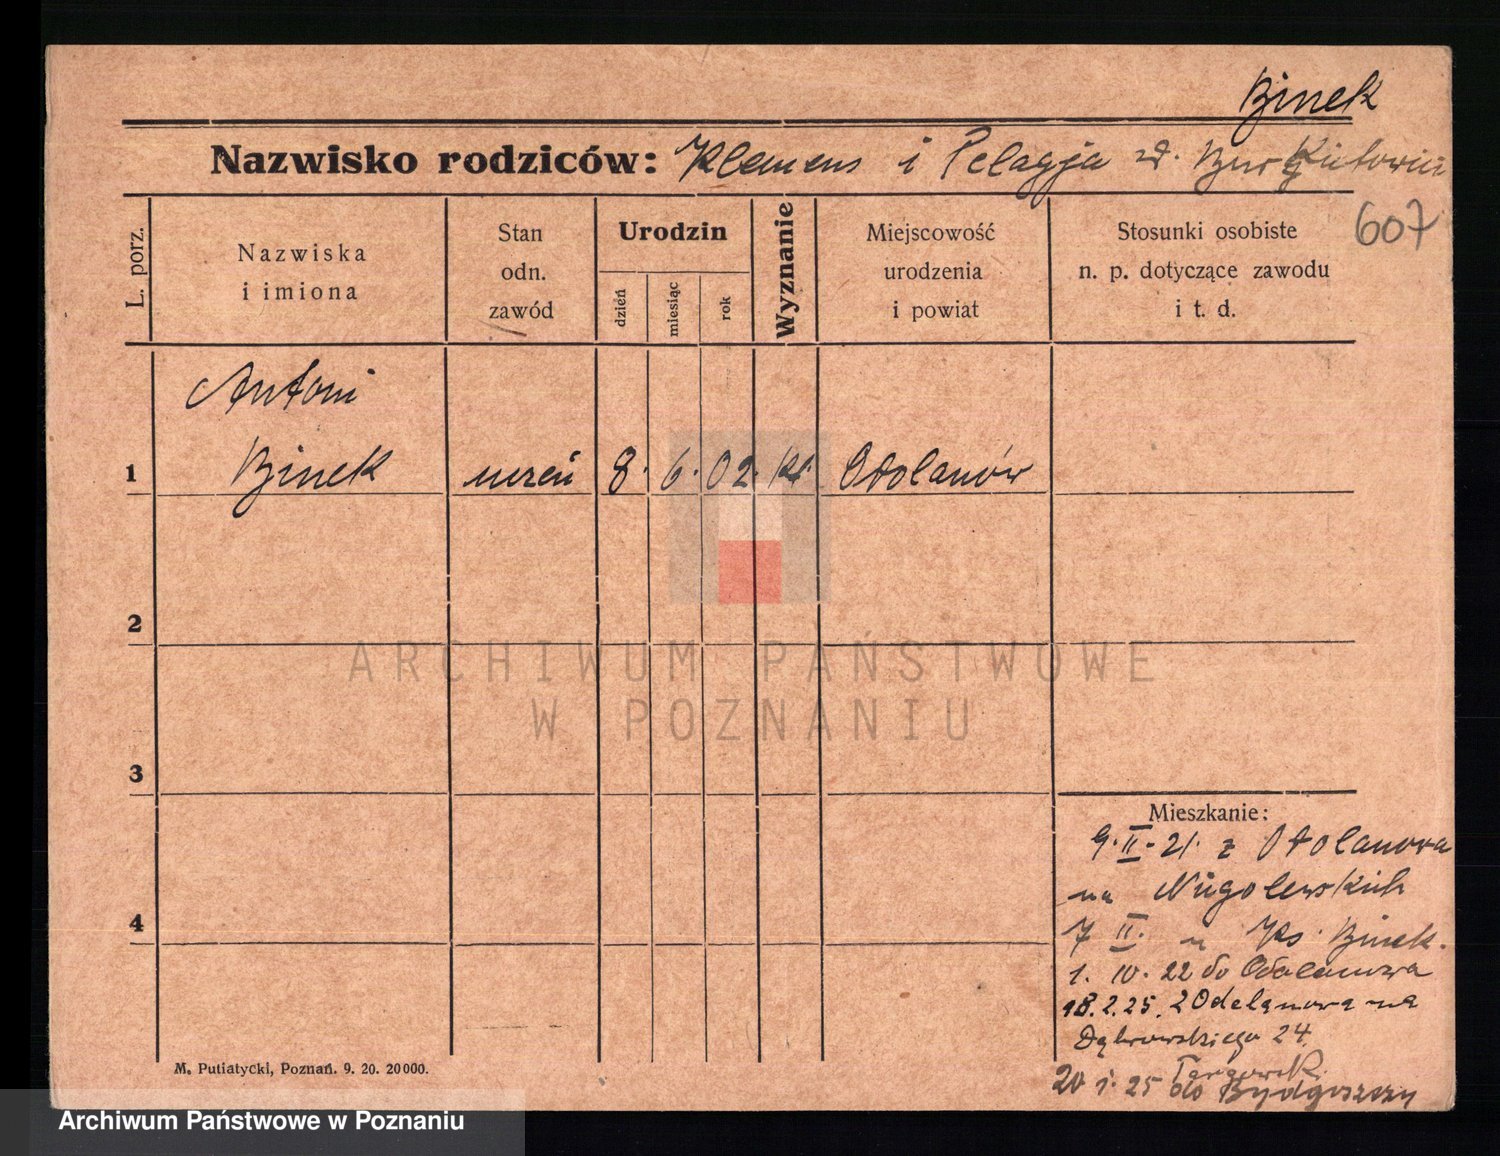 Binek
Nazwisko rodziców: Klemens i Pelagja zd.
607
L. porz.
Nazwiska
i imiona
Stan
odn.
zawód
Urodzin
dzień
miesiąc
rok
Wyznanie
Miejscowość
urodzenia
i powiat
Stosunki osobiste
n. p. dotyczące zawodu
i t. d.
Antoni
1 Binek uczeń 8. 6. 02. kt. Odolanów
2
3
4
ARCHIWUM PAŃSTWOWE
W POZNANIU
Mieszkanie:
9. II. 21. z Odolanowa
na
7 II. u Ks. Binek.
1. 10. 22 do Odolanowa
18. 2. 25. z Odolanowa na
Dąbrowskiego 24.
Targowsk.
20 1. 25 do Bydgoszczy
M. Putiatycki, Poznań. 9. 20. 20000.
Archiwum Państwowe w Poznaniu